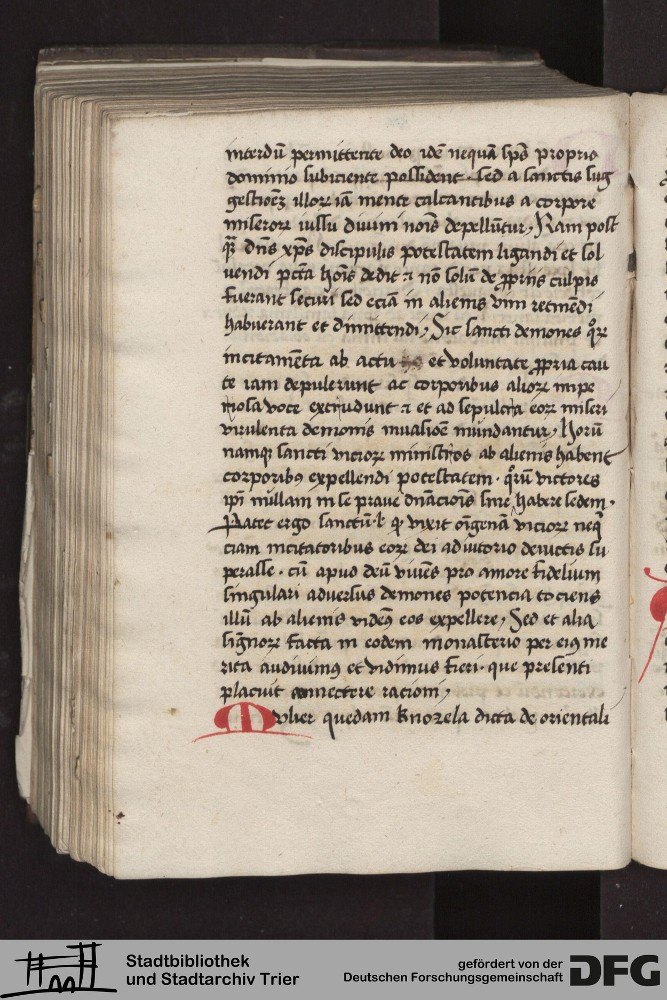 interdū permittente deo idē nequā sp̄s proprio
dominio subiciente possident. Sed a sanctis sug
gestiōeꝫ illoꝝ iā mente calcantibus a corpore
miseroꝝ iussu diuini noīs depellūtur, Nam post
qᷓ dn̄s xp̄s discipulis potestatem ligandi et sol
uendi pctā hoīs dedit ⁊ nō solū de ꝓpriis culpis
fuerant securi sed eciā in alienis vim retinēdi
habuerant et dimittendi, Sic sancti demones qͦꝝ
incitamēta ab actu et voluntate ꝓpria cau
te iam depulerunt ac corporibus alioꝝ impe
riosa voce extrudunt ⁊ et ad sepulcra eoꝝ miseri
virulenta demonis inuasiōe mundantur, Horū
namqꝫ sancti vicioꝝ ministros ab alienis habent
corporibꝰ expellendi potestatem. qͦrū victores
ip̄i nullam in se praue dn̄acionis sine habere sedem.
Patet ergo sanctū. qͥ vixit oīgenā vicioꝝ neqͣ
ciam incitatoribus eoꝝ dei adiutorio deuictis su
perasse. cū apud deū viuēs pro amore fidelium
singulari aduersus demones potencia tociens
illū ab alienis videmꝰ eos expellere, Sed et alia
signoꝝ facta in eodem monasterio per eiꝰ me
rita audiuimꝰ et vidimus fieri. que presenti
placuit annectere racioni,
Mulier quedam knozela dicta de orientali
Stadtbibliothek
und Stadtarchiv Trier
gefördert von der
Deutschen Forschungsgemeinschaft
DFG